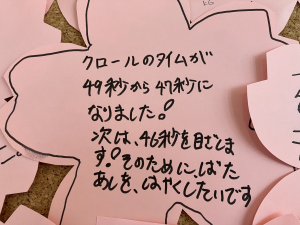 クロールのタイムが
49秒から47秒に
なりました!
次は、46秒を目ざしま
す!そのために、ばた
あしを、はやくしたいです